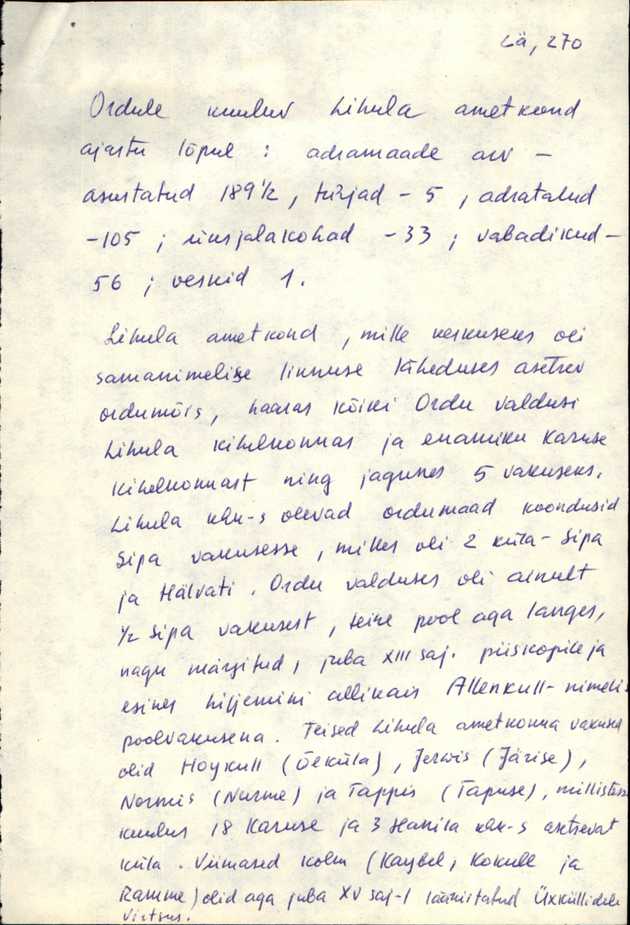 Lä, 270
Ordule kuuluv Lihula ametkond
ajastu lõpul : adramaade arv –
asustatud 189½, tühjad – 5, adratalud
– 105 ; üksjalakohad – 33 ; vabadikud –
56 ; veskid 1.
Lihula ametkond, mille keskuseks oli
samanimelise linnuse läheduses asetsev
ordumõis, haaras kõiki Ordu valdusi
Lihula kihelkonnas ja enamiku Karuse
kihelkonnast ning jagunes 5 vakuseks.
Lihula khk-s olevad ordumaad koondusid
Sipa vakusesse, milles oli 2 küla – Sipa
ja Hälvati. Ordu valduses oli ainult
½ Sipa vakusest, teine pool aga langes,
nagu märgitud, juba XIII saj. piiskopile ja
esines hiljemini allikais Allenkull-nimelis
poolvakusena. Teised Lihula ametkonna vakused
olid Hoykull (Õeküla), Jerwis (Järise),
Normis (Nurme) ja Tappis (Tapuse), millistesse
kuulus 18 Karuse ja 3 Hanila khk-s asetsevat
küla. Viimased kolm (Kaybel, Kokull ja
Ramme) olid aga juba XV saj-l läänistatud Üxküllidele
Virtsus.